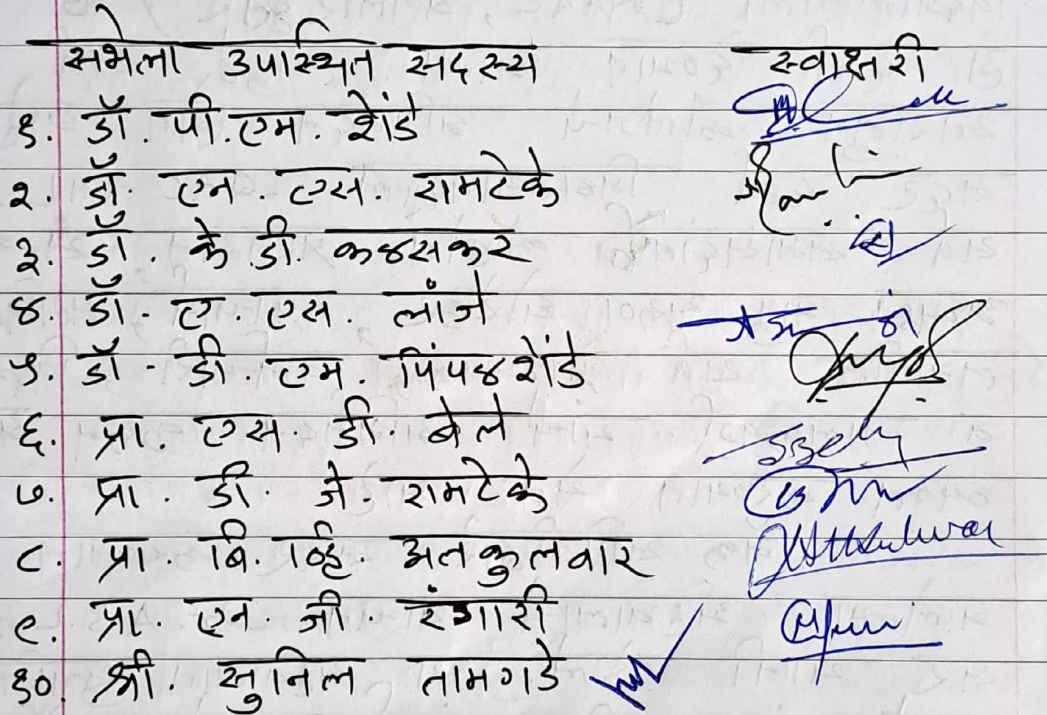 सभेला उपस्थित सदस्य स्वाक्षरी
१. डॉ. पी. एम. शेंडे
२. डॉ. एन. एस. रामटेके
३. डॉ. के. डी. कळसकर
४. डॉ. ए. एस लांजे
५. डॉ. डी. एम. पिंपळशेंडे
६. प्रा. एस. डी बेले
७. प्रा. डी. जे. रामटेके
८. प्रा. बि. व्हि. अतकुलवार
९. प्रा. एन. जी. रंगारी
१०. श्री. सुनिल तामगडे